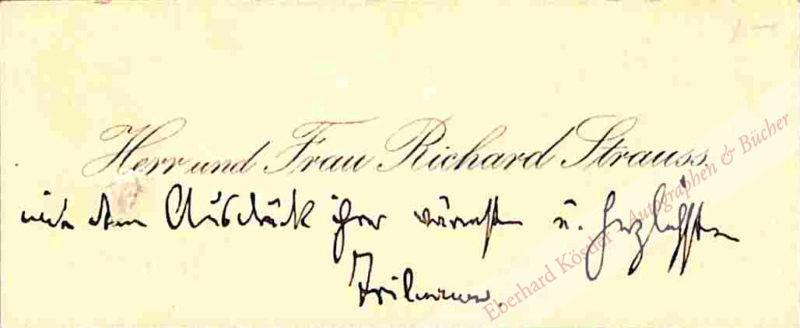 Herr und Frau Richard Strauss
mit dem Ausdruck ihrer wärmsten u. herzlichsten
Teilnahme.
Eberhard Köstler - Autographen & Bücher